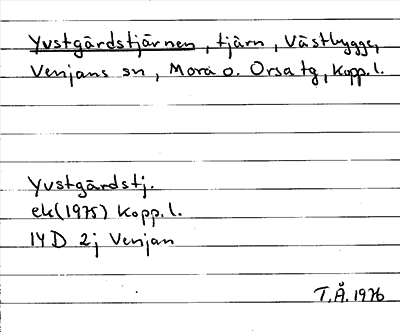 Yvstgärdstjärnen, tjärn, Västbygge,
Venjans sn, Mora o. Orsa tg, Kopp. l.
Yvstgärdstj.
ek (1975) Kopp. l.
14 D 2j Venjan
T.Å. 1976